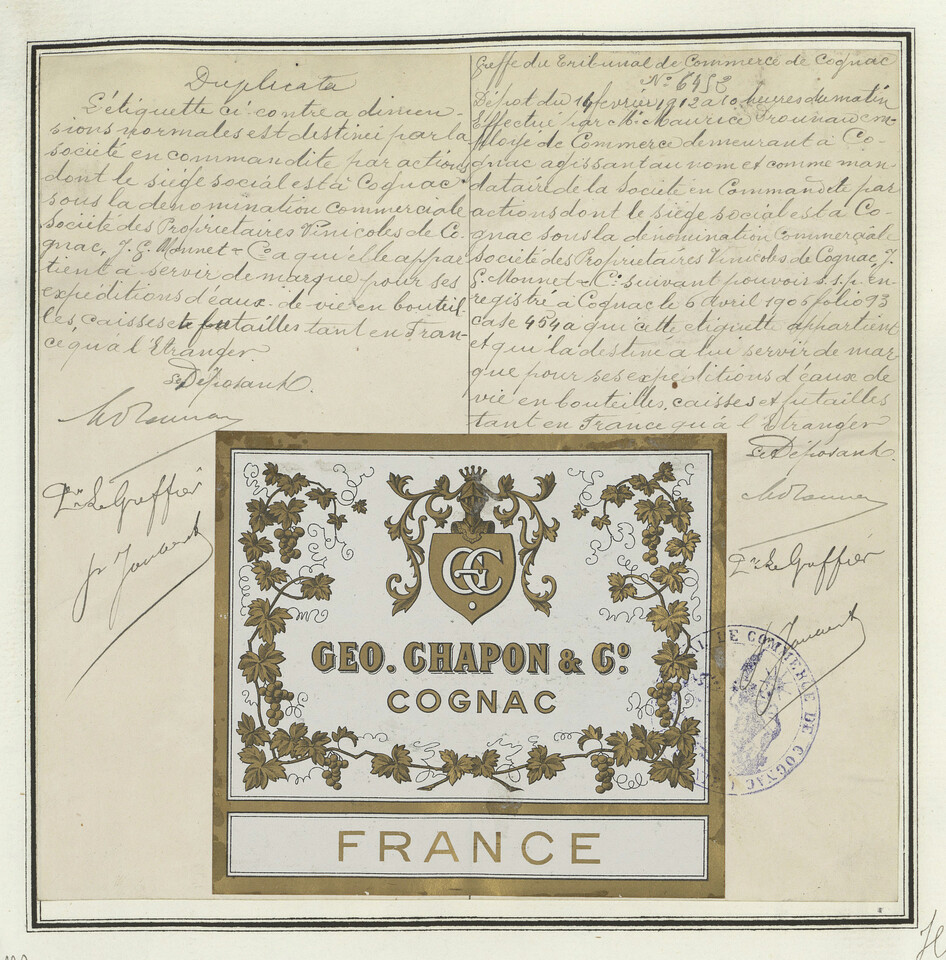 Duplicata
L'étiquette ci-contre a dimen-
sions normales est destineé par la
société en commandite par actions
dont le siége social est à Cognac
sous la denomination commerciale
Société des Propriétaires Vinicoles de Co-
gnac, J. G. Monnet & Ca qu'elle appar
tient à servir de marque pour ses
expéditions d'eaux-de-vie en bouteil-
les, caisses et futailles tant en Fran-
ce qu'a l'Etranger.
Le Déposant.
Pr Le Greffier
Greffe du Tribunal de Commerce de Cognac
No 6452
Dépot du 14 fevrier 1912 a 10 heures du matin
Effectué par Mr Maurice em-
ployé de Commerce demeurant à Co-
gnac agissant au nom et comme man-
dataire de la Société en Commandite par
actions dont le siége social est à Co-
gnac sous la dénomination Commerciale
Société des Propriétaires Vinicoles de Cognac, J.
G. Monnet & Co suivant pouvoir s.s.p. en-
registré à Cognac le 6 Avril 1905 folio 93
case 454 à qui cette etiquette appartient
et qui la destine a lui servir de mar
que pour ses expéditions d'eaux de
vie en bouteilles, caisses et futailles
tant en France qu'à l'Etranger
Le Déposant.
Pr Le Greffier
GC
GEO. CHAPON & Co.
COGNAC
FRANCE
LE COMMERCE DE COGNAC